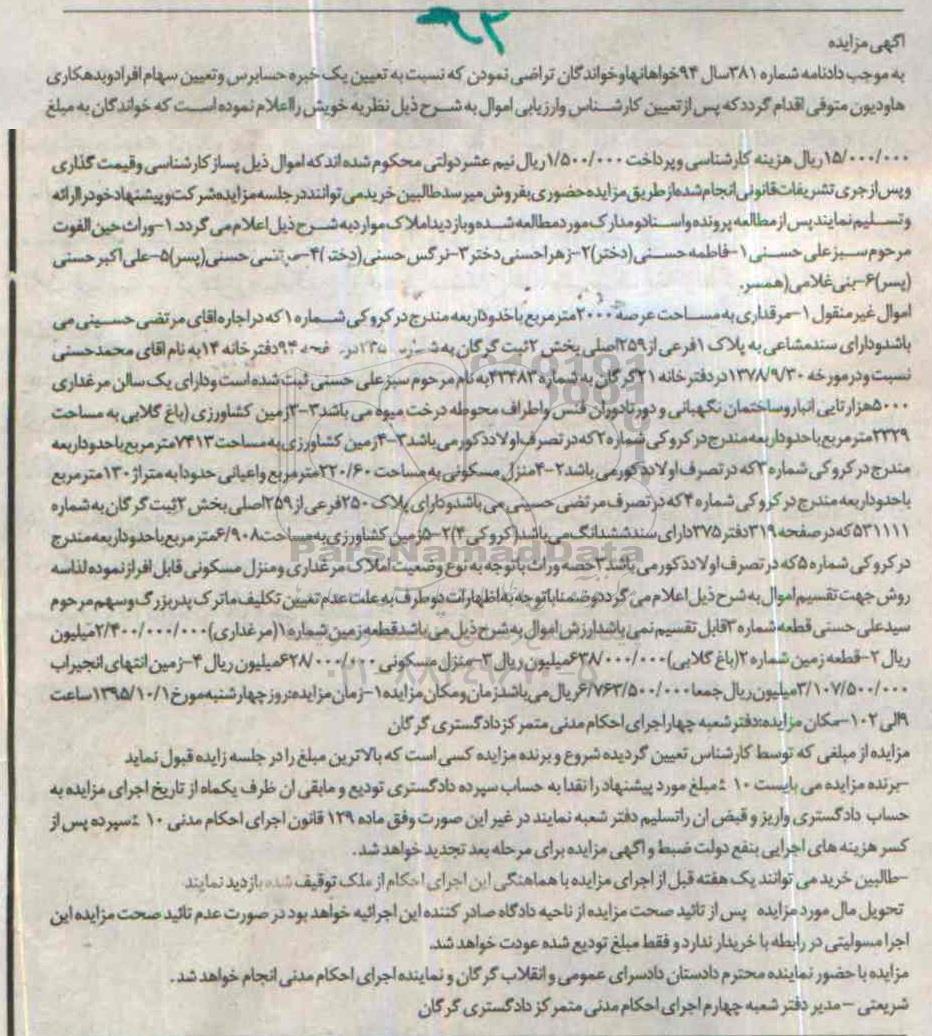 آگهی مزایده
به موجب دادنامه شماره ۳۸۱سال ۹۴خواهانهاوخواندگان تراضی نمودن که نسبت به تعیین یک خبره حسابرس وتعیین سهام افرادوبدهکاری
هاودیون متوفی اقدام گردد که پس از تعیین کارشناس وارزیابی اموال به شرح ذیل نظریه خویش رااعلام نموده است که خواندگان به مبلغ
۱۵/۰۰۰/۰۰۰ریال هزینه کارشناسی وپرداخت ۱/۵۰۰/۰۰۰ریال نیم عشردولتی محکوم شده اند که اموال ذیل پساز کارشناسی وقیمت گذاری
وپس ازجری تشریفات قانونی انجام شده از طریق مزایده حضوری بفروش میرسد طالبین خرید می توانند در جلسه مزایده شرکت وپیشنهاد خودراارائه
وتسلیم نمایند پس از مطالعه پرونده واسنادو مدارک موردمطالعه شده وبازدیداملاک مواردبه شرح ذیل اعلام می گردد.۱-وراث حین الفوت
مرحوم سبزعلی حسنی ۱-فاطمه حسنی (دختر)۲-زهراحسنی دختر۳-نرگس حسنی (دختر)۴-مرتضی حسنی(پسر)۵-علی اکبرحسنی
(پسر)۶-بنی غلامی(همسر.
اموال غیر منقول ۱-مرقداری به مساحت عرصه ۲۰۰۰مترمربع باخدودار بعه مندرج در کروکی شماره ۱که دراجاره اقای مرتضی حسینی می
باشدودارای سندمشاعی به پلاک ۱فرعی از۲۵۹اصلی بخش ۲ثبت گرگان به ۹۴دفترخانه ۱۴به نام اقای محمدحسنی
نسبت ودرمورخه ۱۳۷۸/۹/۳۰دردفترخانه ۲۱گرگان به شماره ۴۳۴۸۳به نام مرحوم سبزعلی حسنی ثبت شده است ودارای یک سالن مرغداری
۵۰۰۰هزارتایی انباروساختمان نگهبانی و دورتادوران فنس واطراف محوطه درخت میوه می باشد۳-۳زمین کشاورزی (باغ گلابی به مساحت
۲۳۲۹مترمربع باحدوداربعه مندرج در کروکی شماره ۲که درتصرف اولادذکورمی باشد۳-۴زمین کشاورزی به مساحت ۷۴۱۳مترمربع باحدوداربعه
مندرج در کروکی شماره ۳که درتصرف اولادذکورمی باشد۲-۴منزل مسکونی به مساحت ۲۲۰/۶۰مترمربع واعیانی حدودابه متراژ ۱۳۰مترمربع
باحدوداربعه مندرج در کروکی شماره ۴که درتصرف مرتضی حسینی می باشدودارای پلاک ۲۵۰فرعی از۲۵۹اصلی بخش ۲ثبت گرگان به شماره
۵۳۱۱۱۱که درصفحه ۳۱۹دفتر ۳۷۵دارای سندششدانگ می باشد(کروکی ۴)۲-۵زمین کشاورزی به مساحت۶/۹۰۸مترمربع باحدوداربعه مندرج
در کروکی شماره ۵که درتصرف اولادذکورمی باشد۳حصه وراث باتوجه به نوع وضعیت املاک مرغداری ومنزل مسکونی قابل افراز نموده لذاسه
روش جهت تقسیم اموال به شرح ذیل اعلام می گرددوضمناباتوجه به اظهارات دوطرف به علت عدم تعیین تکلیف ماترک پدربزرگ وسهم مرحوم
سیدعلی حسنی قطعه شماره ۳قابل تقسیم نمی باشدارزش اموال به شرح ذیل می باشدقطعه زمین شماره ۱(مرغداری)۲/۴۰۰/۰۰۰/۰۰۰میلیون
ریال ۲-قطعه زمین شماره ۲(باغ گلابی)۶۳۸/۰۰۰/۰۰۰میلیون ریال ۳-منزل مسکونی ۶۲۸/۰۰۰/۰۰۰میلیون ریال ۴-زمین انتهای انجیراب
۳/۱۰۷/۵۰۰/۰۰۰میلیون ریال جمعا ۶/۷۶۳/۵۰۰/۰۰۰ریال می باشدزمان ومکان مزایده ۱-زمان مزایده:روز چهارشنبه مورخ ۱۳۹۵/۱۰/۱ساعت
۹الی ۱۰۲-مکان مزایده:دفترشعبه چهاراجرای احکام مدنی متمرکزدادگستری گرگان
مزایده از مبلغی که توسط کارشناس تعیین گردیده شروع و برنده مزایده کسی است که بالاترین مبلغ را در جلسه زایده قبول نماید
-برنده مزایده می بایست ۱۰ ٪ مبلغ مورد پیشنهاد را نقدا به حساب سپرده دادگستری تودیع و مابقی ان ظرف یکماه از تاریخ اجرای مزایده به
حساب دادگستری واریز و قبض ان راتسلیم دفتر شعبه نمایند در غیر این صورت وفق ماده ۱۲۹ قانون اجرای احکام مدنی ۱۰ ٪سپرده پس از
کسر هزینه های اجرایی بنفع دولت ضبط و اگهی مزایده برای مرحله بعد تجدید خواهد شد.
-طالبین خرید می توانند یک هفته قبل از اجرای مزایده با هماهنگی این اجرای احکام از ملک توقیف شده بازدید نمایند
تحویل مال مورد مزایده پس از تائید صحت مزایده از ناحیه دادگاه صادر کننده این اجرائیه خواهد بود در صورت عدم تائید صحت مزایده این
اجرا مسولیتی در رابطه با خریدار ندارد و فقط مبلغ تودیع شده عودت خواهد شد.
مزایده با حضور نماینده محترم دادستان دادسرای عمومی و انقلاب گرگان و نماینده اجرای احکام مدنی انجام خواهد شد.
شریعتی - مدیر دفتر شعبه چهارم اجرای احکام مدنی متمرکز دادگستری گرگان
ParsNamadData